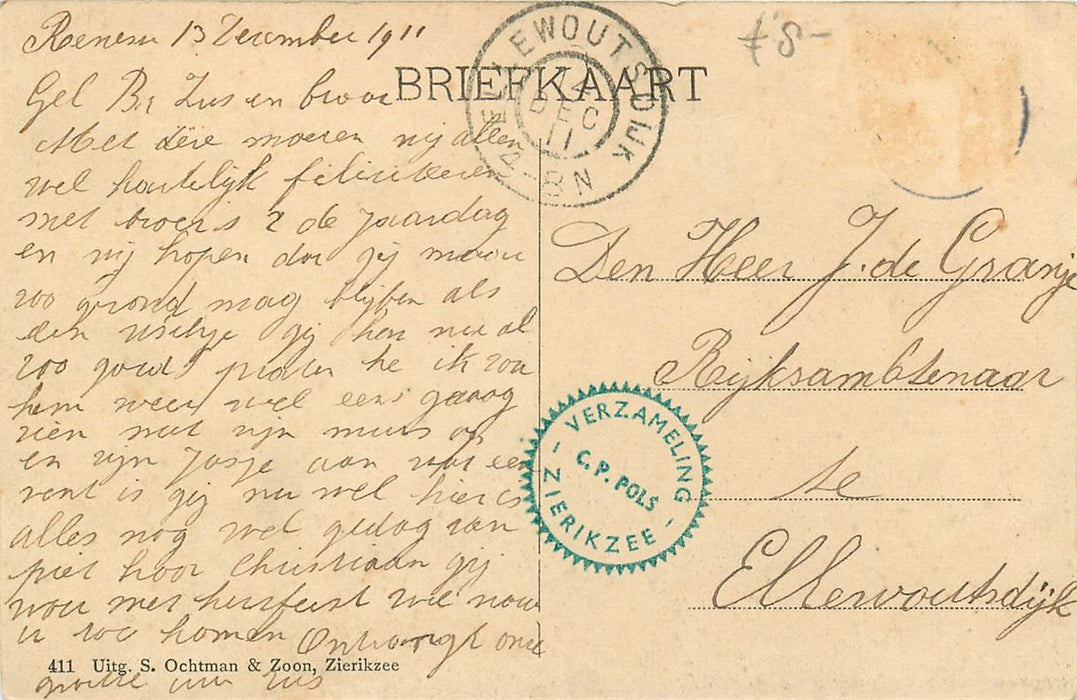 Renesse 13 December 1911
Gel Br Zus en broer
Met deze moeten wij allen
wel hartelijk feliciteeren
met broers 2 de jaardag
en wij hopen dat gij maar
zoo grond mag blijven als
een vischje gij hen nu al
zoo goed praten he ik zou
hem weer wel eens graag
zien met zijn muts op
en zijn jasje aan wat een
vent is gij nu wel hier is
alles nog wel gedag van
piet hoor Christiaan gij
wou met kersfeest wel naar
u zoo komen Ontvangt onze
groete uw zus
BRIEFKAART
ELLEWOUTSDIJK
DEC
11
4-8N
f 8-
Den Heer J. de Granje
Rijksambtenaar
te
Ellewoutsdijk
- VERZAMELING -
C.P. POLS
ZIERIKZEE
411 Uitg. S. Ochtman & Zoon, Zierikzee